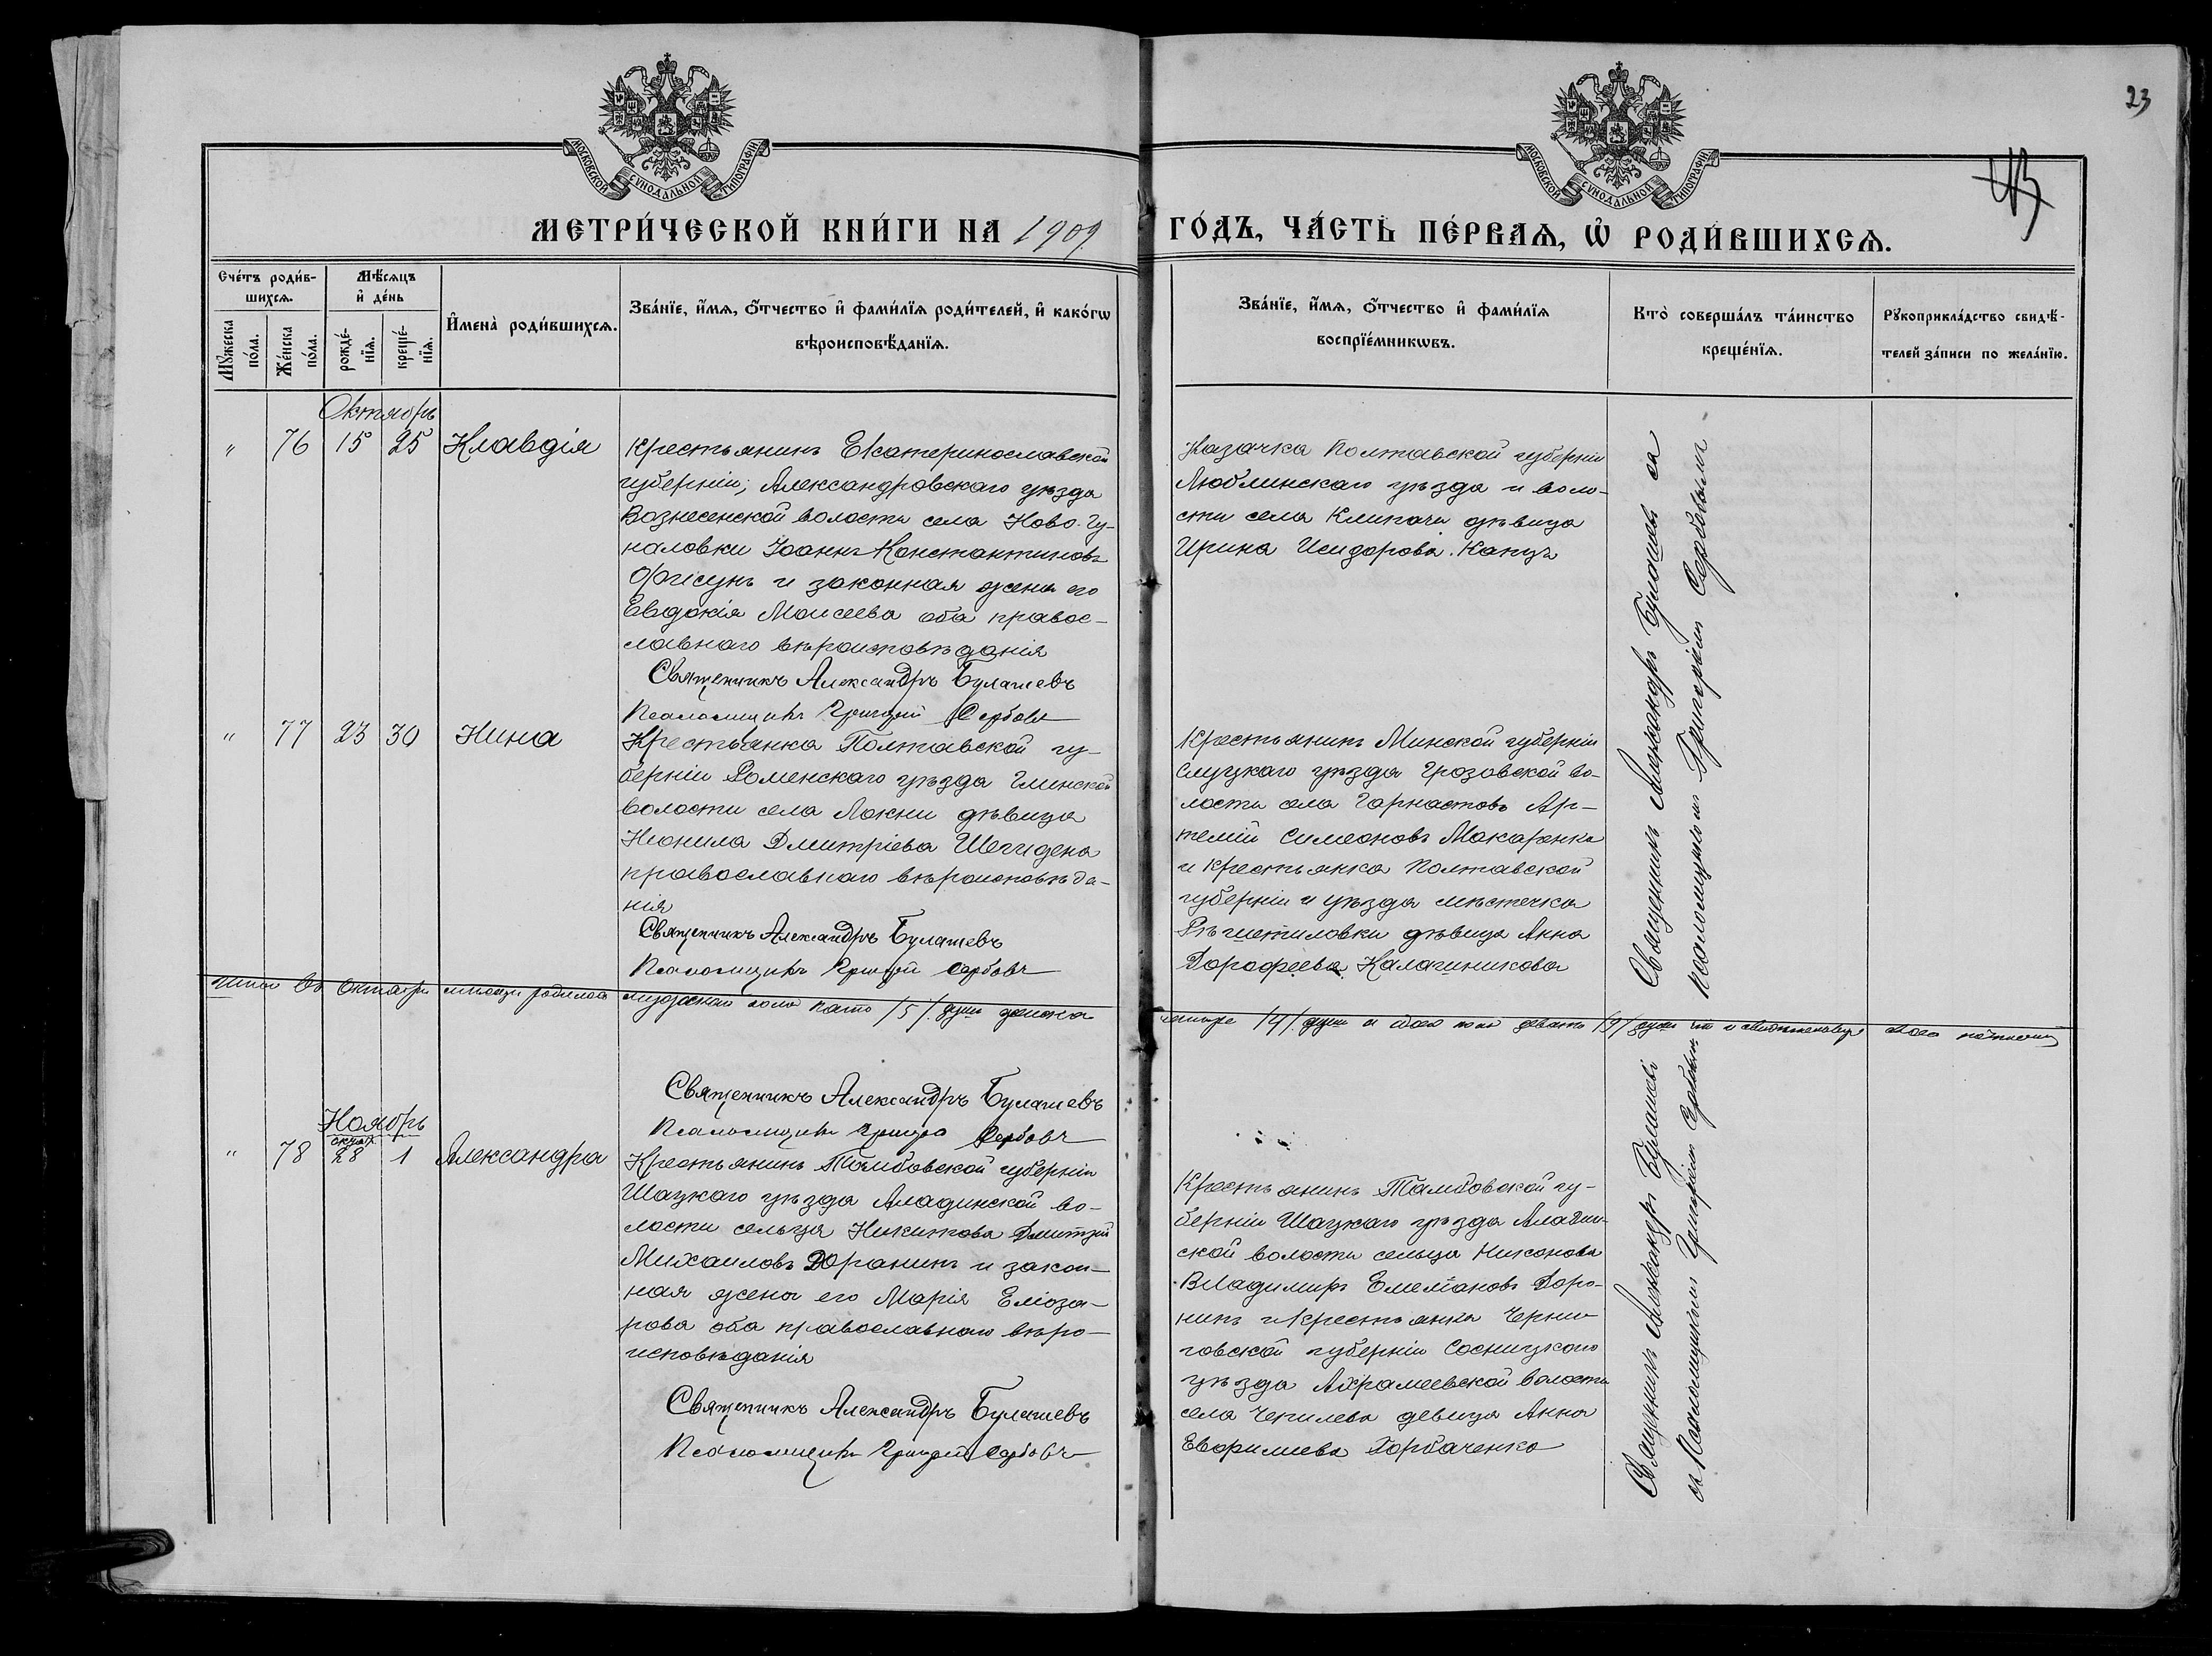 23
МОСКОВСКОЙ СѴНОДАЛЬНОЙ ТИПОГРАФІИ
МОСКОВСКОЙ СѴНОДАЛЬНОЙ ТИПОГРАФІИ
МЕТРИ́ЧЕСКОЙ КНИ́ГИ НА 1909
ГО́ДЪ, ЧА́СТЬ ПЕ́РВАѦ, Ѡ҆ РОДИ́ВШИХСѦ.
Сче́тъ роди́в-
шихсѧ.
Мѣ́сѧцъ
и҆ де́нь
Мꙋ́жеска
по́ла.
Же́нска
по́ла.
рожде́-
нїѧ.
креще́-
нїѧ.
И҆мена̀ роди́вшихсѧ.
Зва́нїе, и҆́мѧ, ѻ҆́тчество и҆ фами́лїѧ роди́телей, и҆ како́гѡ
вѣроисповѣ́данїѧ.
Зва́нїе, и҆́мѧ, ѻ҆́тчество и҆ фами́лїѧ
воспрїе́мникѡвъ.
Кто̀ соверша́лъ та́инство
креще́нїѧ.
Рꙋкоприкла́дство свидѣ́-
телей за́писи по жела́нїю.
Октябрь
" 76 15 25 Клавдія
Крестьянинъ Екатеринославской
губерніи, Александровскаго уѣзда
Вознесенской волости села Ново-Гу-
паловки Іоаннъ Константиновъ
и законная жена его
Евдокія Моисеева оба правос-
лавнаго вѣроисповѣданія
Священникъ Александръ Булашевъ
Псаломщикъ Григорій Сербовъ
Казачка Полтавской губерніи
уѣзда и воло-
сти села Клипачи дѣвица
Ирина Исидорова Капцъ
Священникъ Александръ Булашевъ съ
псаломщикомъ Григоріемъ Сербовымъ
" 77 23 30 Нина
Крестьянка Полтавской гу-
берніи Роменскаго уѣзда Глинской
волости села Локни дѣвица
Неонила Дмитріева
православнаго вѣроисповѣда-
нія
Священникъ Александръ Булашевъ
Псаломщикъ Григорій Сербовъ
Крестьянинъ Минской губерніи
Слуцкаго уѣзда Грозовской во-
лости села Горнастовъ Ар-
темій Симеоновъ Макаренко
и крестьянка Полтавской
губерніи и уѣзда мѣстечка
Рѣшетиловки дѣвица Анна
Дорофеева Калашникова
Итого въ октябрѣ мѣсяцѣ родилось мужскаго пола пять /5/ душъ женска
четыре /4/ душъ а обоего пола девять /9/ душъ что и свидѣтельствуемъ
Священникъ Александръ Булашевъ
Псаломщикъ Григорій Сербовъ
Ноябрь
октяб.
" 78 28 1 Александра
Крестьянинъ Тамбовской губерніи
Шацкаго уѣзда Аладинской во-
лости сельца Никитова Дмитрій
Михаиловъ и закон-
ная жена его Марія Еліоза-
рова оба православнаго вѣро-
исповѣданія
Священникъ Александръ Булашевъ
Псаломщикъ Григорій Сербовъ
Крестьянинъ Тамбовской гу-
берніи Шацкаго уѣзда Аладин-
ской волости сельца Никонова
Владимиръ Емеліановъ Доро-
нинъ и крестьянка Черни-
говской губерніи Сосницкаго
уѣзда волости
села девица Анна
Горбаченко
Священникъ Александръ Булашевъ
съ Псаломщикомъ Григоріемъ Сербовымъ